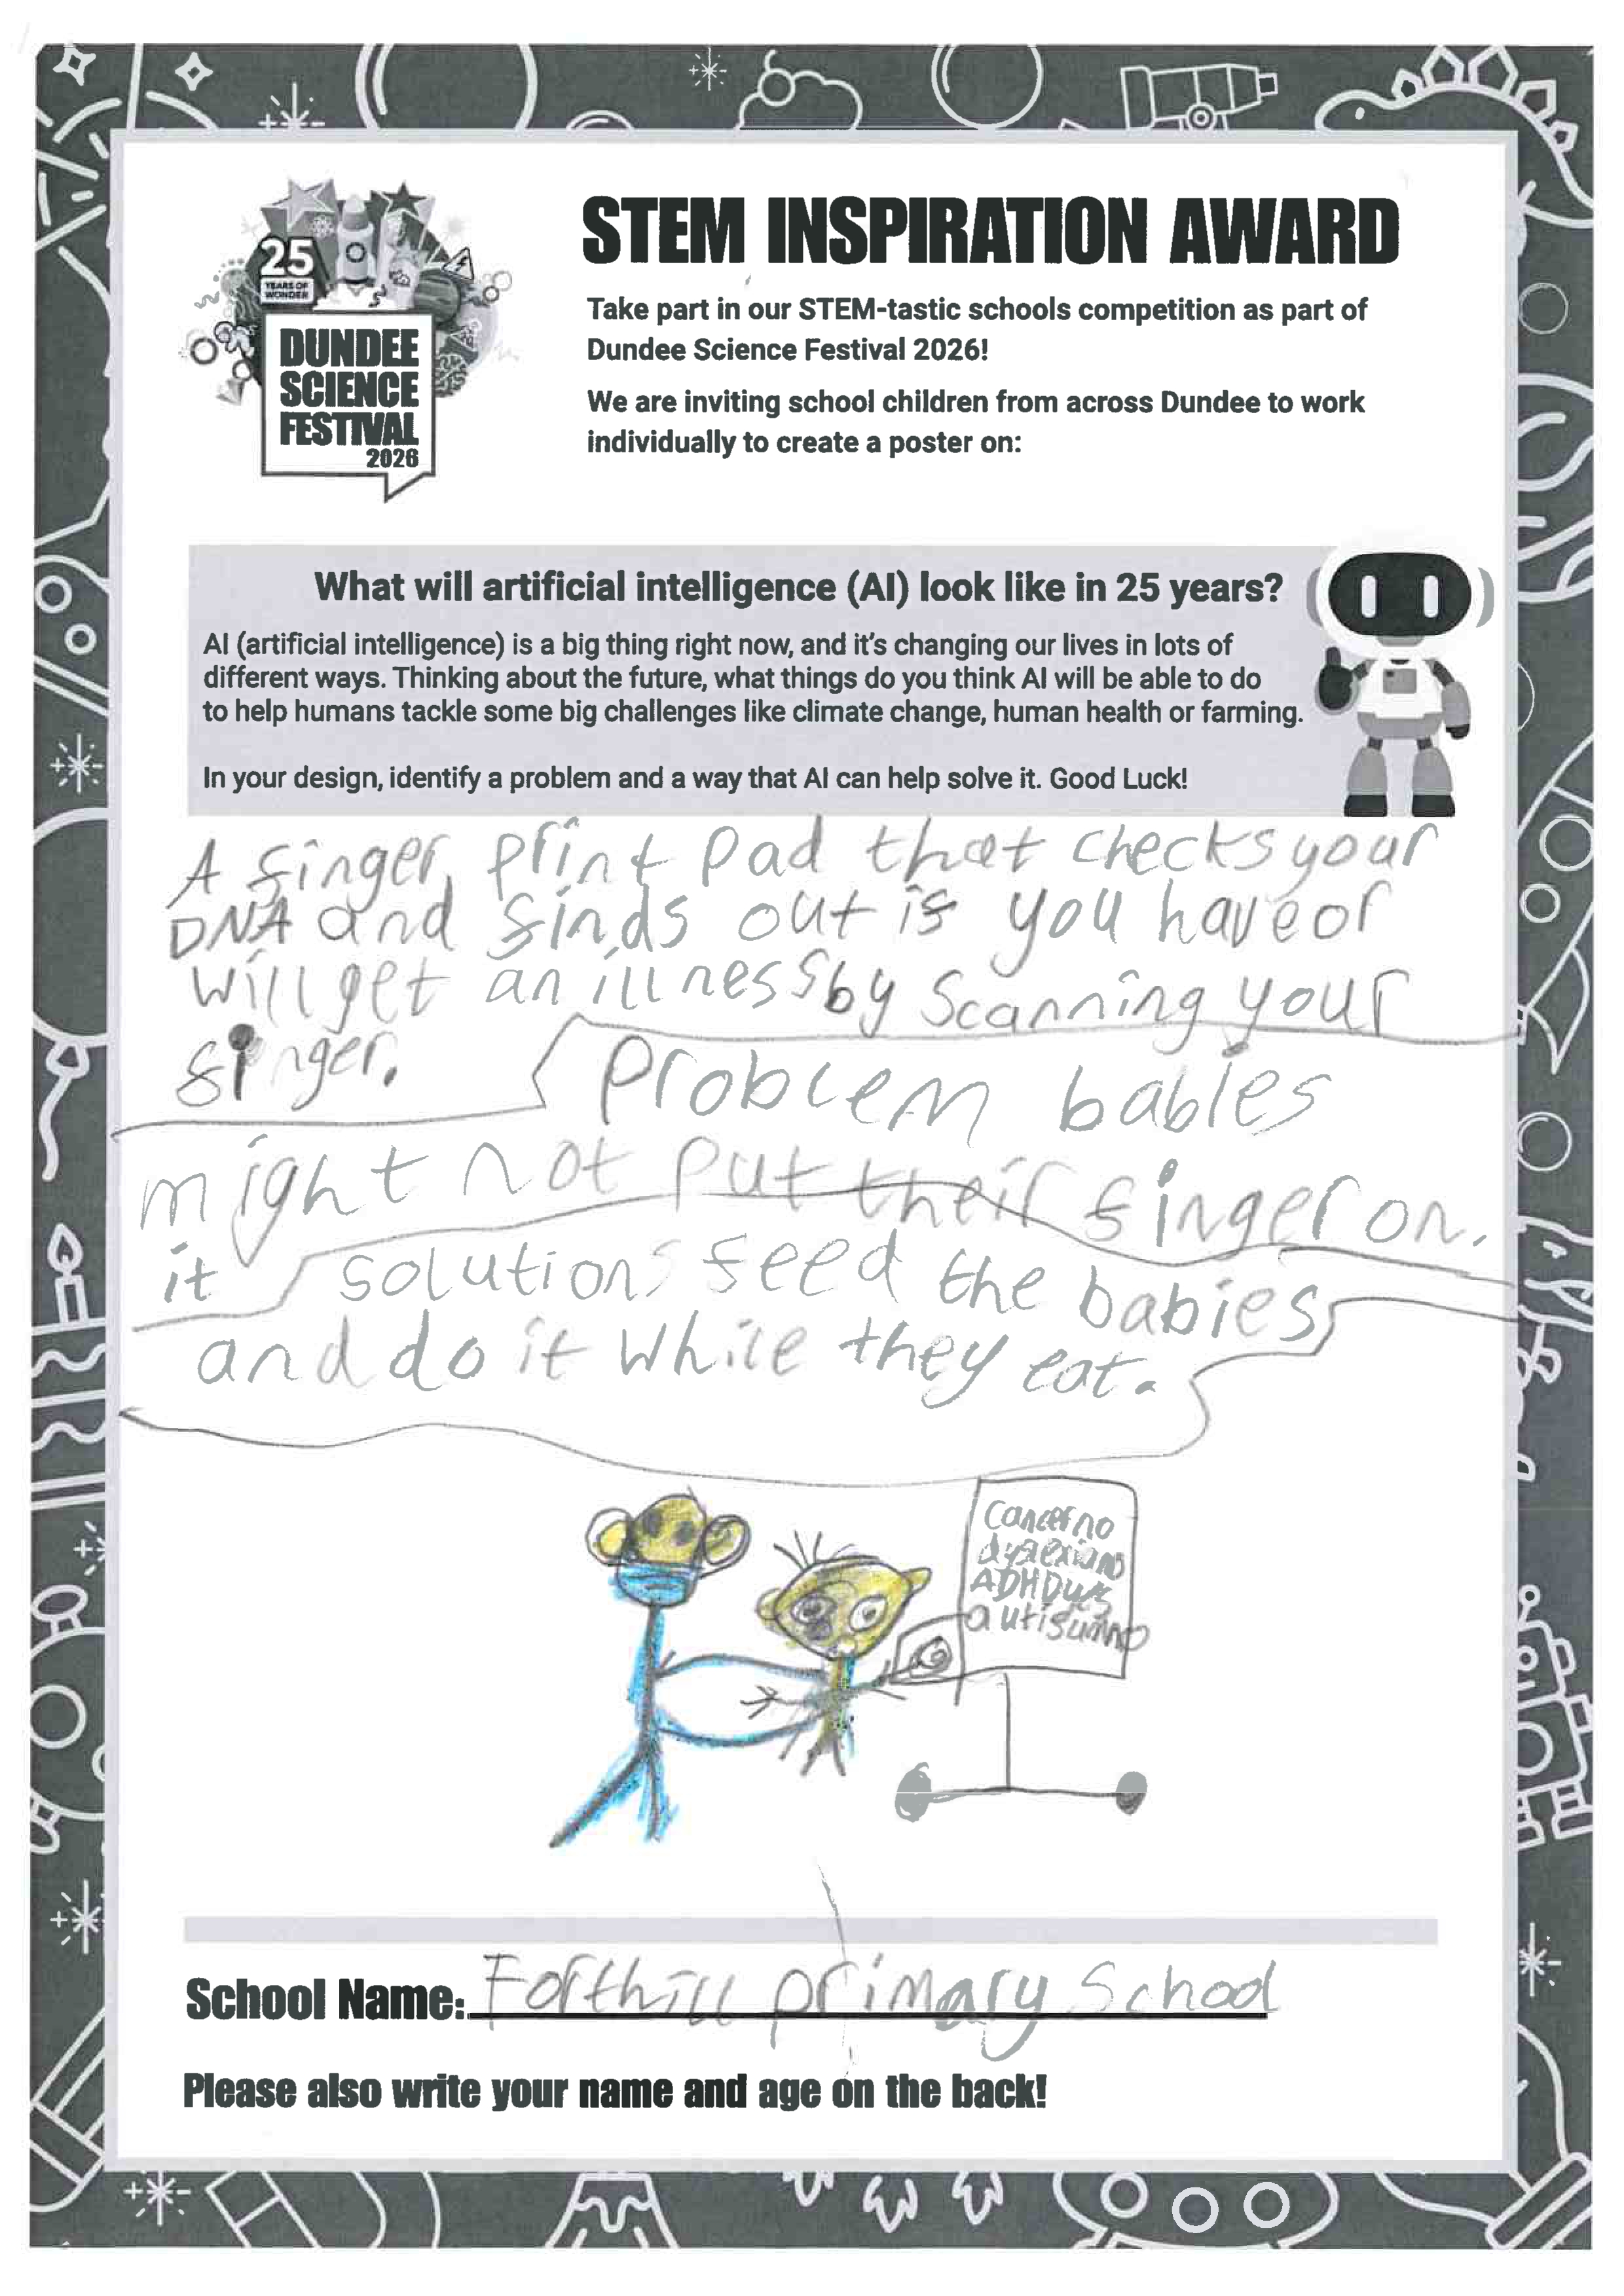 25
YEARS OF
WONDER
DUNDEE
SCIENCE
FESTIVAL
2026
STEM INSPIRATION AWARD
Take part in our STEM-tastic schools competition as part of
Dundee Science Festival 2026!
We are inviting school children from across Dundee to work
individually to create a poster on:
What will artificial intelligence (AI) look like in 25 years?
AI (artificial intelligence) is a big thing right now, and it's changing our lives in lots of
different ways. Thinking about the future, what things do you think AI will be able to do
to help humans tackle some big challenges like climate change, human health or farming.
In your design, identify a problem and a way that AI can help solve it. Good Luck!
A finger print pad that checks your
DNA and finds out if you have or
will get an illness by scanning your
finger.
problem babies
might not put their finger on.
it solutions feed the babies
and do it while they eat.
Cancer no
ADHD
autisum no
School Name: Forthill primary School
Please also write your name and age on the back!